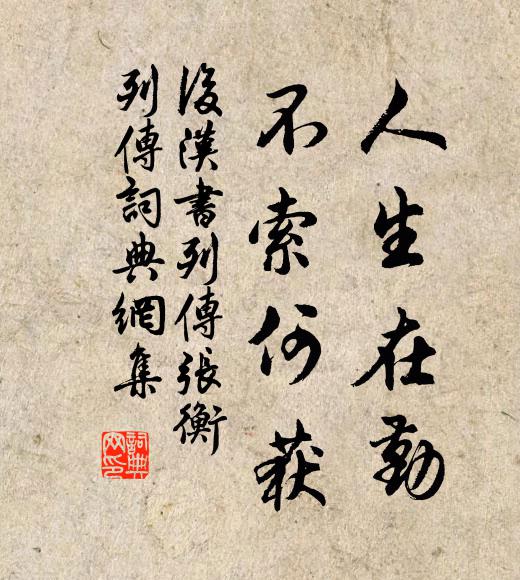 人生在勤
不索何获
後漢書列傳張衡
列傳詞典網集
詞典网印